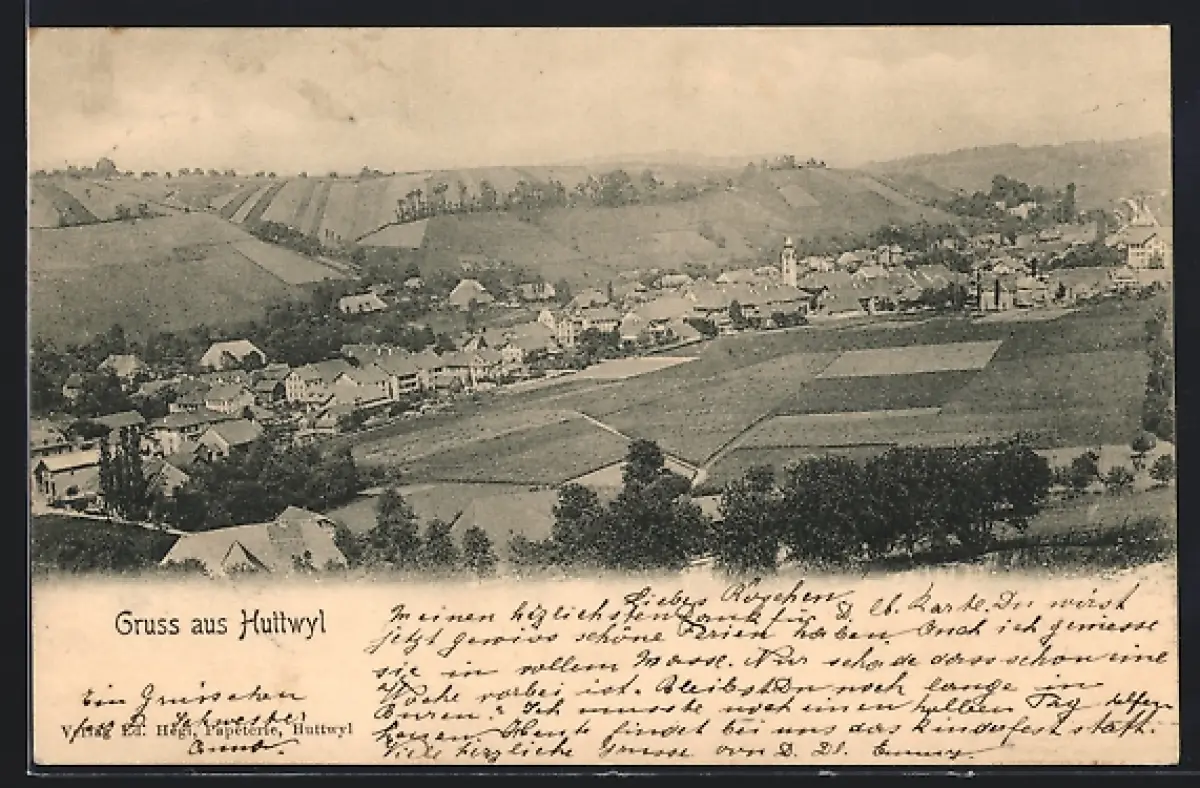 Gruss aus Huttwyl
Liebes Röschen
Meinen herzlichsten Dank für D. lb. Karte. Du wirst
jetzt gewiss schöne Ferien haben. Auch ich geniesse
sie in vollem Masse. Nur schade dass schon eine
Woche vorbei ist. Bleibst Du noch lange in
Büren? Ich musste noch einen halben Tag helfen
heuen. Heute findet bei uns das Kinderfest statt.
Viele herzliche Grüsse von D. Dl. Emmy
Ein Grüsschen
Schwester
Anna.
Verlag Ed. Hegi, Papeterie, Huttwyl